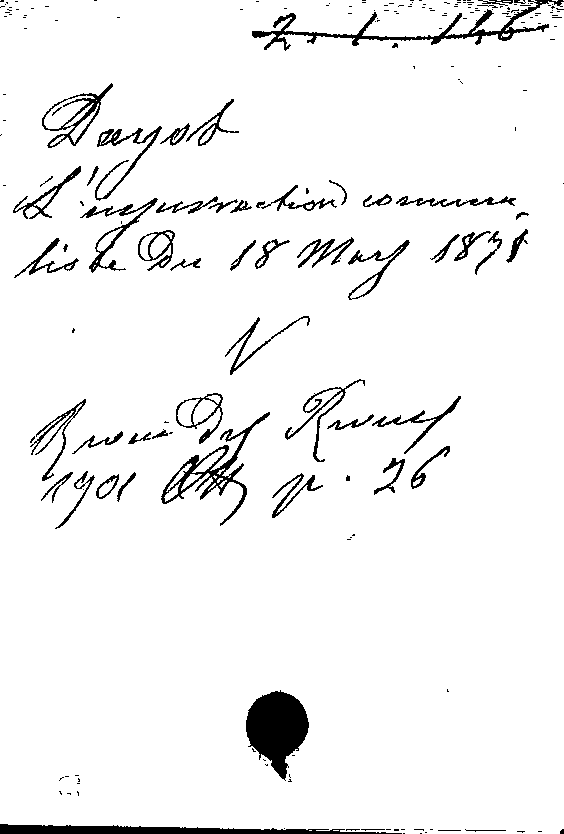 2. 1. 146
Dayot
L'insurrection communa_
liste du 18 Mars 1871
V
Revue des Revues
1901 p. 26